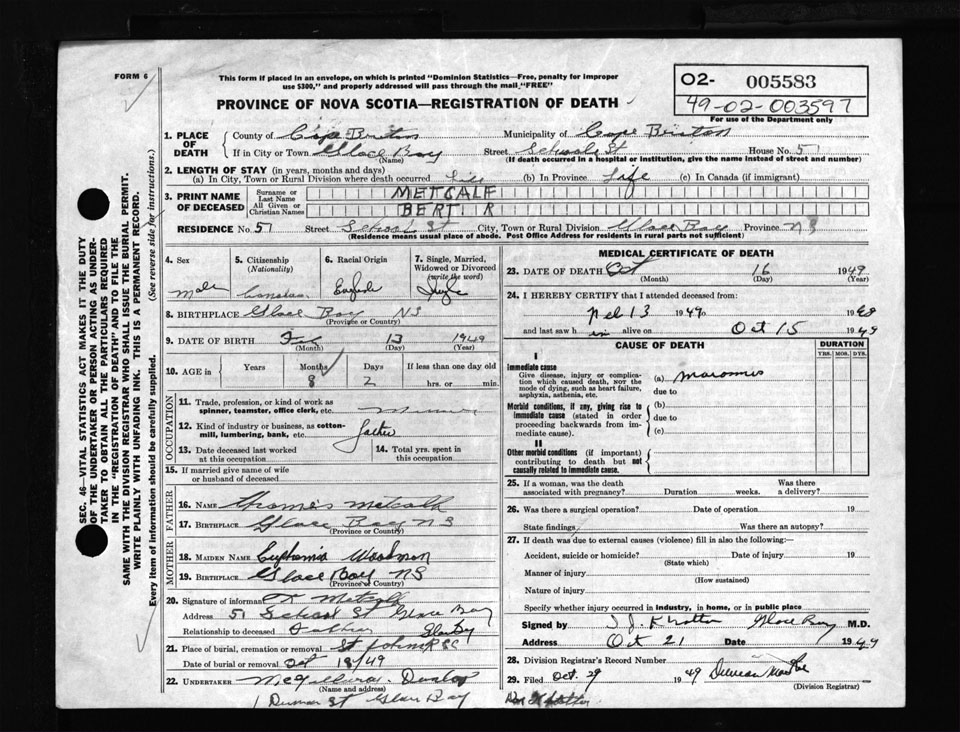 FORM 6
This form if placed in an envelope, on which is printed "Dominion Statistics—Free, penalty for improper
use $300," and properly addressed will pass through the mail "FREE"
PROVINCE OF NOVA SCOTIA—REGISTRATION OF DEATH
O2- 005583
49-02-003597
For use of the Department only
SEC. 46—VITAL STATISTICS ACT MAKES IT THE DUTY
OF THE UNDERTAKER OR PERSON ACTING AS UNDER-
TAKER TO OBTAIN ALL THE PARTICULARS REQUIRED
IN THE "REGISTRATION OF DEATH" AND TO FILE THE
SAME WITH THE DIVISION REGISTRAR WHO SHALL ISSUE THE BURIAL PERMIT.
WRITE PLAINLY WITH UNFADING INK. THIS IS A PERMANENT RECORD.
Every item of information should be carefully supplied. (See reverse side for instructions.)
1. PLACE OF DEATH
County of Cape Breton Municipality of Cape Breton
If in City or Town Glace Bay Street School St House No. 51
(Name) (If death occurred in a hospital or institution, give the name instead of street and number)
2. LENGTH OF STAY (in years, months and days)
(a) In City, Town or Rural Division where death occurred Life (b) In Province Life (c) In Canada (if immigrant)
3. PRINT NAME OF DECEASED
Surname or Last Name METCALF
All Given or Christian Names BERT R
RESIDENCE No. 51 Street School St City, Town or Rural Division Glace Bay Province NS
(Residence means usual place of abode. Post Office Address for residents in rural parts not sufficient)
4. Sex Male
5. Citizenship (Nationality) Canadian
6. Racial Origin English
7. Single, Married, Widowed or Divorced (write the word) Single
8. BIRTHPLACE Glace Bay NS
(Province or Country)
9. DATE OF BIRTH Feb 13 1949
(Month) (Day) (Year)
10. AGE in Years Months 8 Days 2 If less than one day old hrs. or min.
OCCUPATION
11. Trade, profession, or kind of work as
spinner, teamster, office clerk, etc. Miner
12. Kind of industry or business, as cotton-
mill, lumbering, bank, etc. father
13. Date deceased last worked
at this occupation
14. Total yrs. spent in
this occupation
15. If married give name of wife
or husband of deceased
FATHER
16. Name Thomas Metcalf
17. Birthplace Glace Bay NS
(Province or Country)
MOTHER
18. Maiden Name Euphemia
19. Birthplace Glace Bay NS
(Province or Country)
20. Signature of informant T Metcalf
Address 51 School St Glace Bay
Relationship to deceased Father Glace Bay
21. Place of burial, cremation or removal St Johns
Date of burial or removal Oct 18/49
22. UNDERTAKER McGillivray Dunlop
(Name and address)
St Glace Bay
MEDICAL CERTIFICATE OF DEATH
23. DATE OF DEATH Oct 16 1949
(Month) (Day) (Year)
24. I HEREBY CERTIFY that I attended deceased from
Feb 13 1949
and last saw h im alive on Oct 15 1949
CAUSE OF DEATH DURATION
YRS. MOS. DYS.
I
Immediate cause
Give disease, injury or complica-
tion which caused death, NOT the
mode of dying, such as heart failure,
asphyxia, asthenia, etc.
(a)
due to
Morbid conditions, if any, giving rise to
immediate cause (stated in order
proceeding backwards from im-
mediate cause).
(b)
due to
(c)
II
Other morbid conditions (if important)
contributing to death but not
causally related to immediate cause.
25. If a woman, was the death
associated with pregnancy? Duration weeks. Was there
a delivery?
26. Was there a surgical operation? Date of operation 19
State findings Was there an autopsy?
27. If death was due to external causes (violence) fill in also the following:—
Accident, suicide or homicide? Date of injury 19
(State which)
Manner of injury
(How sustained)
Nature of injury
Specify whether injury occurred in industry, in home, or in public place
Signed by Glace Bay M.D.
Address Oct 21 Date 1949
28. Division Registrar's Record Number
29. Filed Oct. 29 1949 Duncan
(Division Registrar)